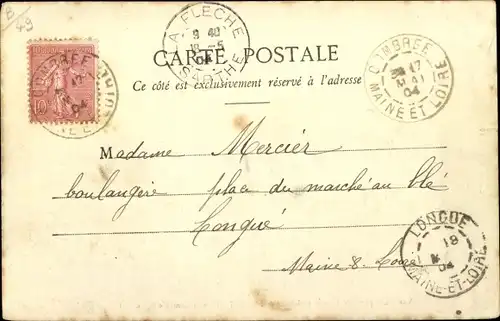 B/49
LA FLECHE
8 40
18 -5
04
SARTHE
COMBREE
17
MAI
04
MAINE ET LOIRE
CARTE POSTALE
Ce côté est exclusivement réservé à l'adresse
10
Madame Mercier
boulangère place du marché au blé
Longué
Maine & Loire
LONGUE
18
04
MAINE-ET-LOIRE